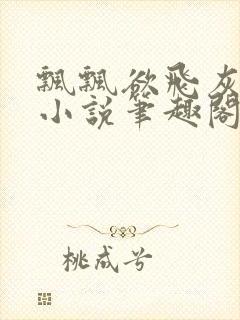 飄飄欲飛灰
小說筆趣閣
桃成兮